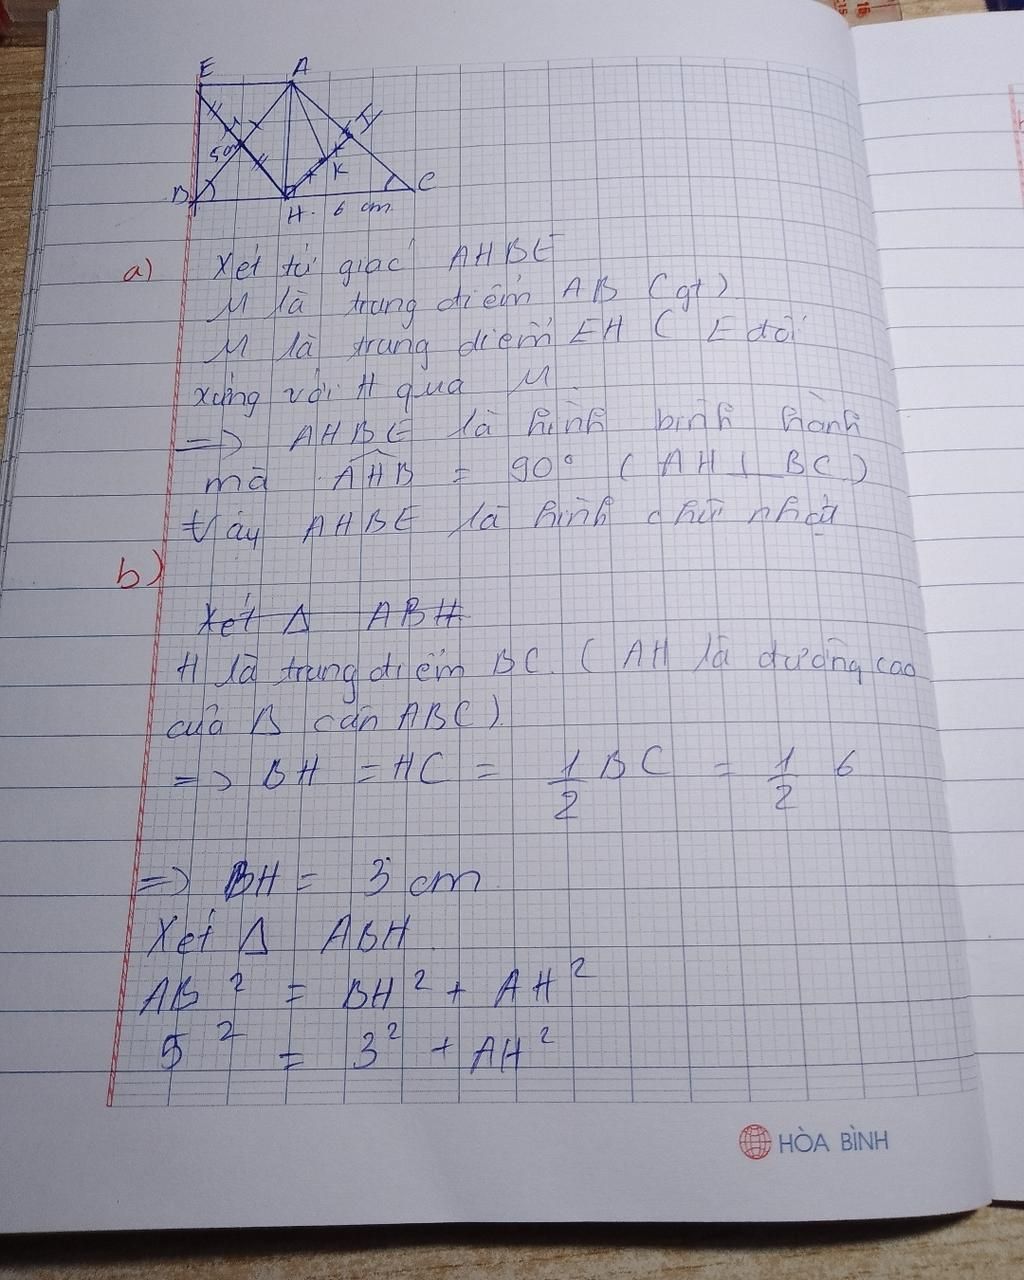 E A
5cm
B H 6 cm C
K
a) Xét tứ giác AHBE
M là trung điểm AB (gt)
M là trung điểm EH ( E đối
xứng với H qua M
=> AHBE là hình bình hành
mà AHB = 90° ( AH ⊥ BC )
Vậy AHBE là hình chữ nhật
b)
Xét Δ ABH
H là trung điểm BC. ( AH là đường cao
của Δ cân ABC)
=> BH = HC = 1/2 BC = 1/2 6
=> BH = 3 cm
Xét Δ ABH
AB² = BH² + AH²
5² = 3² + AH²
HÒA BÌNH